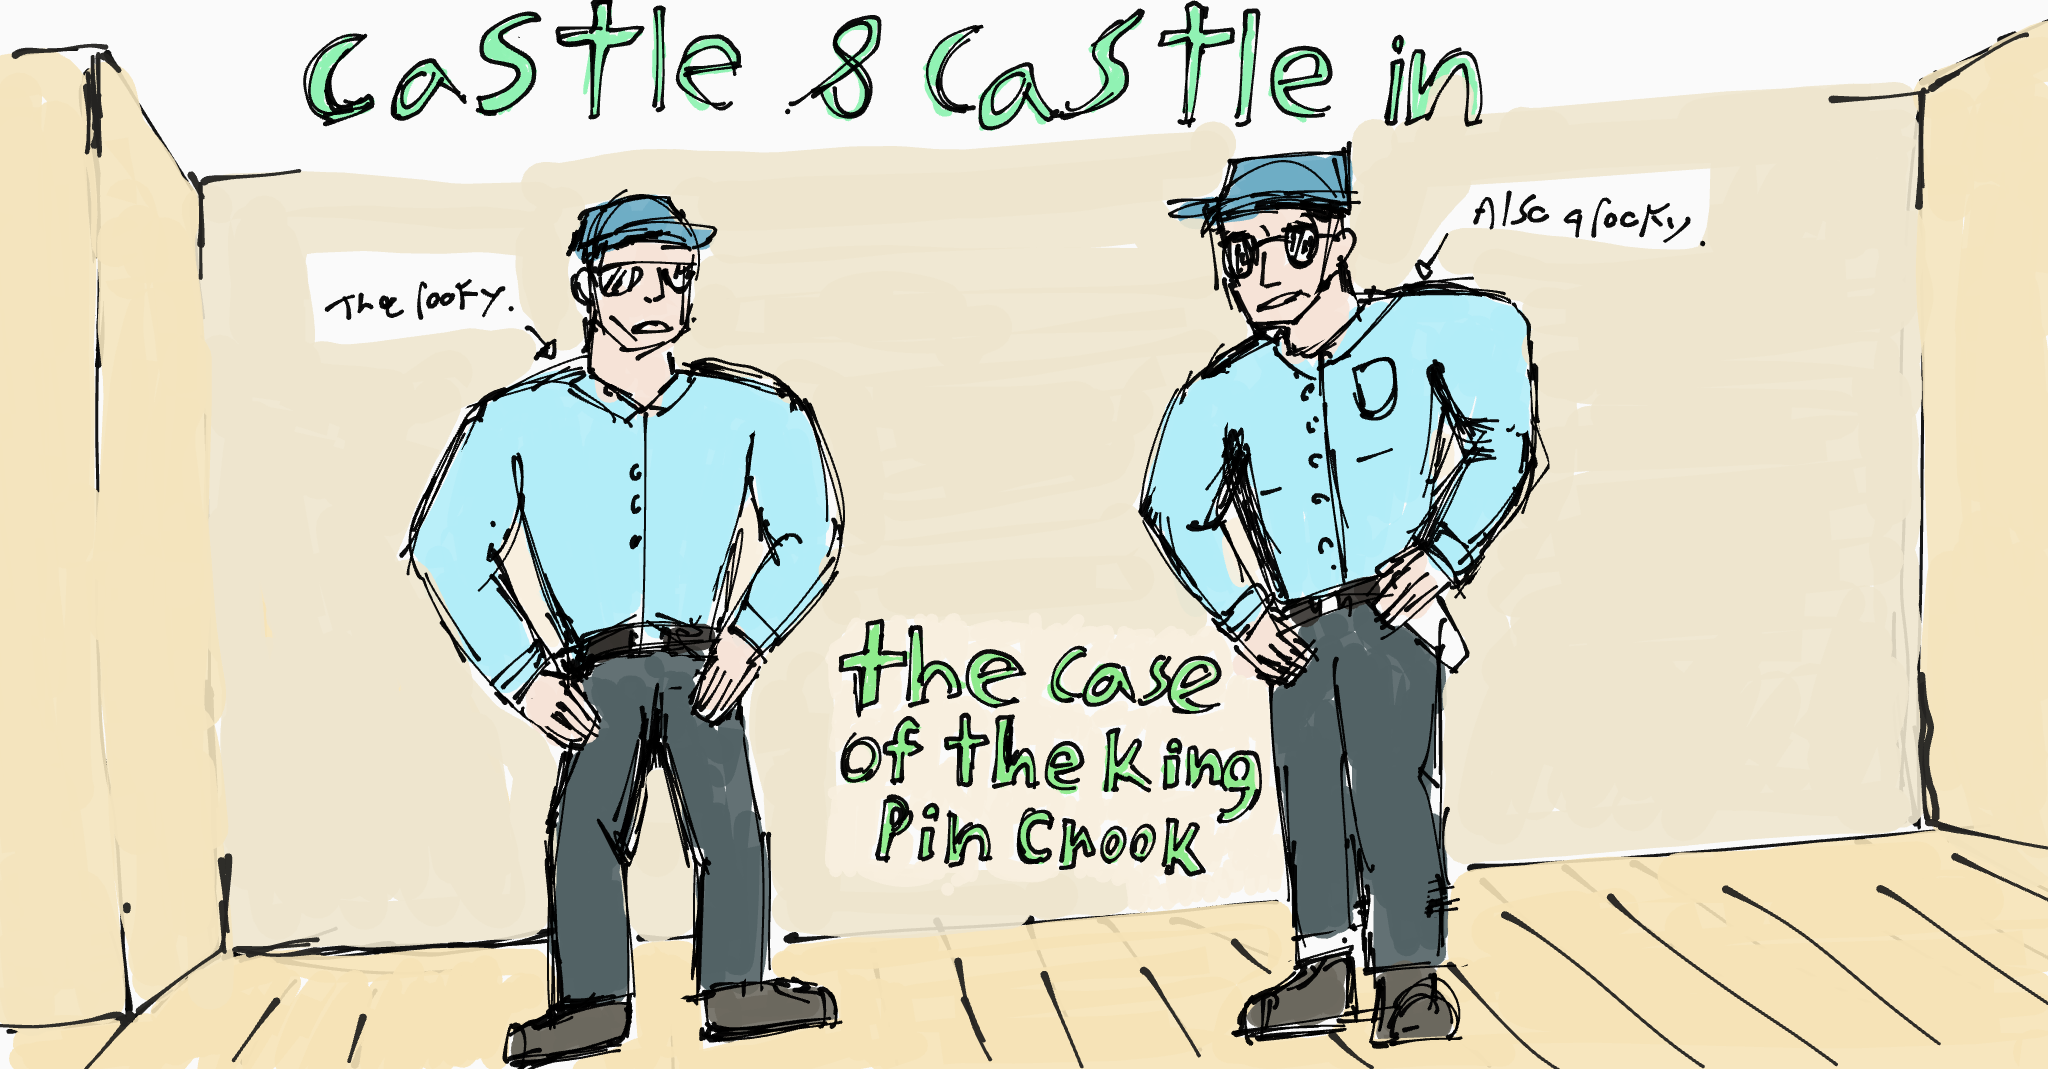 Castle & Castle in
The rooky.
Also a rocky.
the case
of the King
Pin Crook